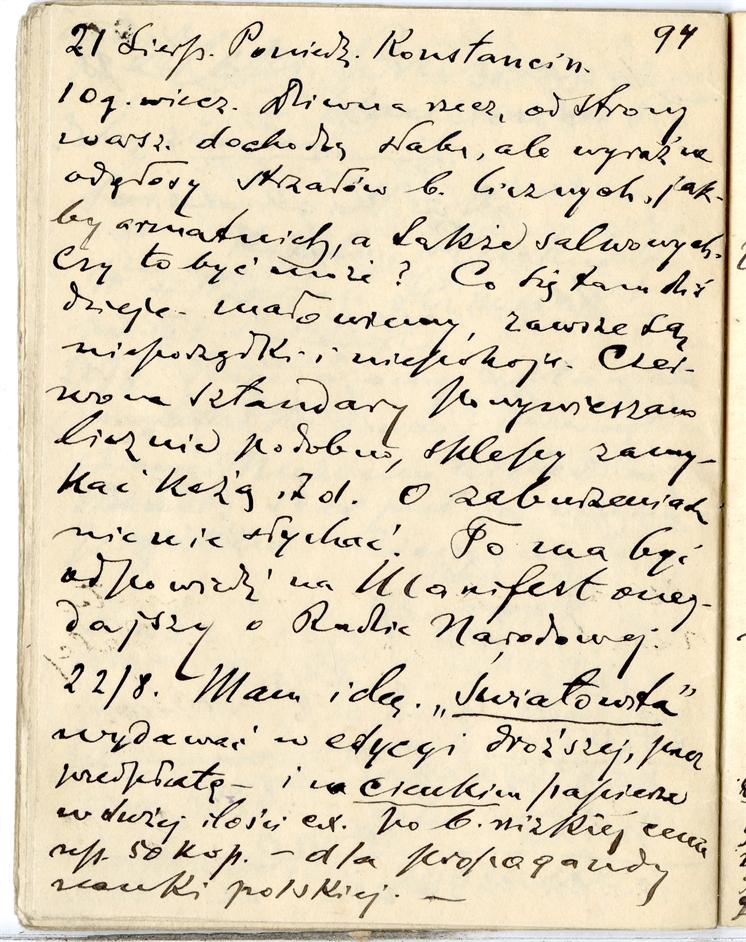 94
21 Sierp. Poniedz. Konstancin.
10 g. wiecz. Dziwna rzecz, od strony
warsz. dochodzą słabe, ale wyraźne
odgłosy strzałów b. licznych, jak-
by armatnich, a także salwowych.
Czy to być może? Co się tam dziś
dzieje - mało wiemy, zawsze są
nieporządki i niepokoje. Czer-
wone sztandary powywieszano
licznie podobno, sklepy zamy-
kać każą itd. O zaburzeniach
nic nie słychać. To ma być
odpowiedź na Manifest oneg-
dajszy o Radzie Narodowej.
22/8. Mam ideę. „Światowita”
wydawać w edycyi droższej, przez
przedpłatę - i na cienkim papierze
w dużej ilości ex. po b. nizkiej cenie
np. 50 kop. - dla propagandy
nauki polskiej. -